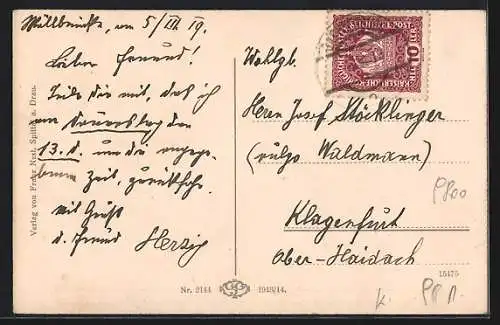 Müllbrücke, am 5/III. 19.
Lieber Freund!
Teile dir mit, daß ich
am Donnerstag den
13. d. um die angege-
bene Zeit, zurückfahre.
Mit Gruß
d. Freund Herzig
Wohlgb.
Herrn Josef Stöcklinger
(vulgo Waldmann)
Klagenfurt
Ober-Haidach
Verlag von Franz Nist, Spittal a. Drau.
Nr. 2144
1913/14.
15475
10